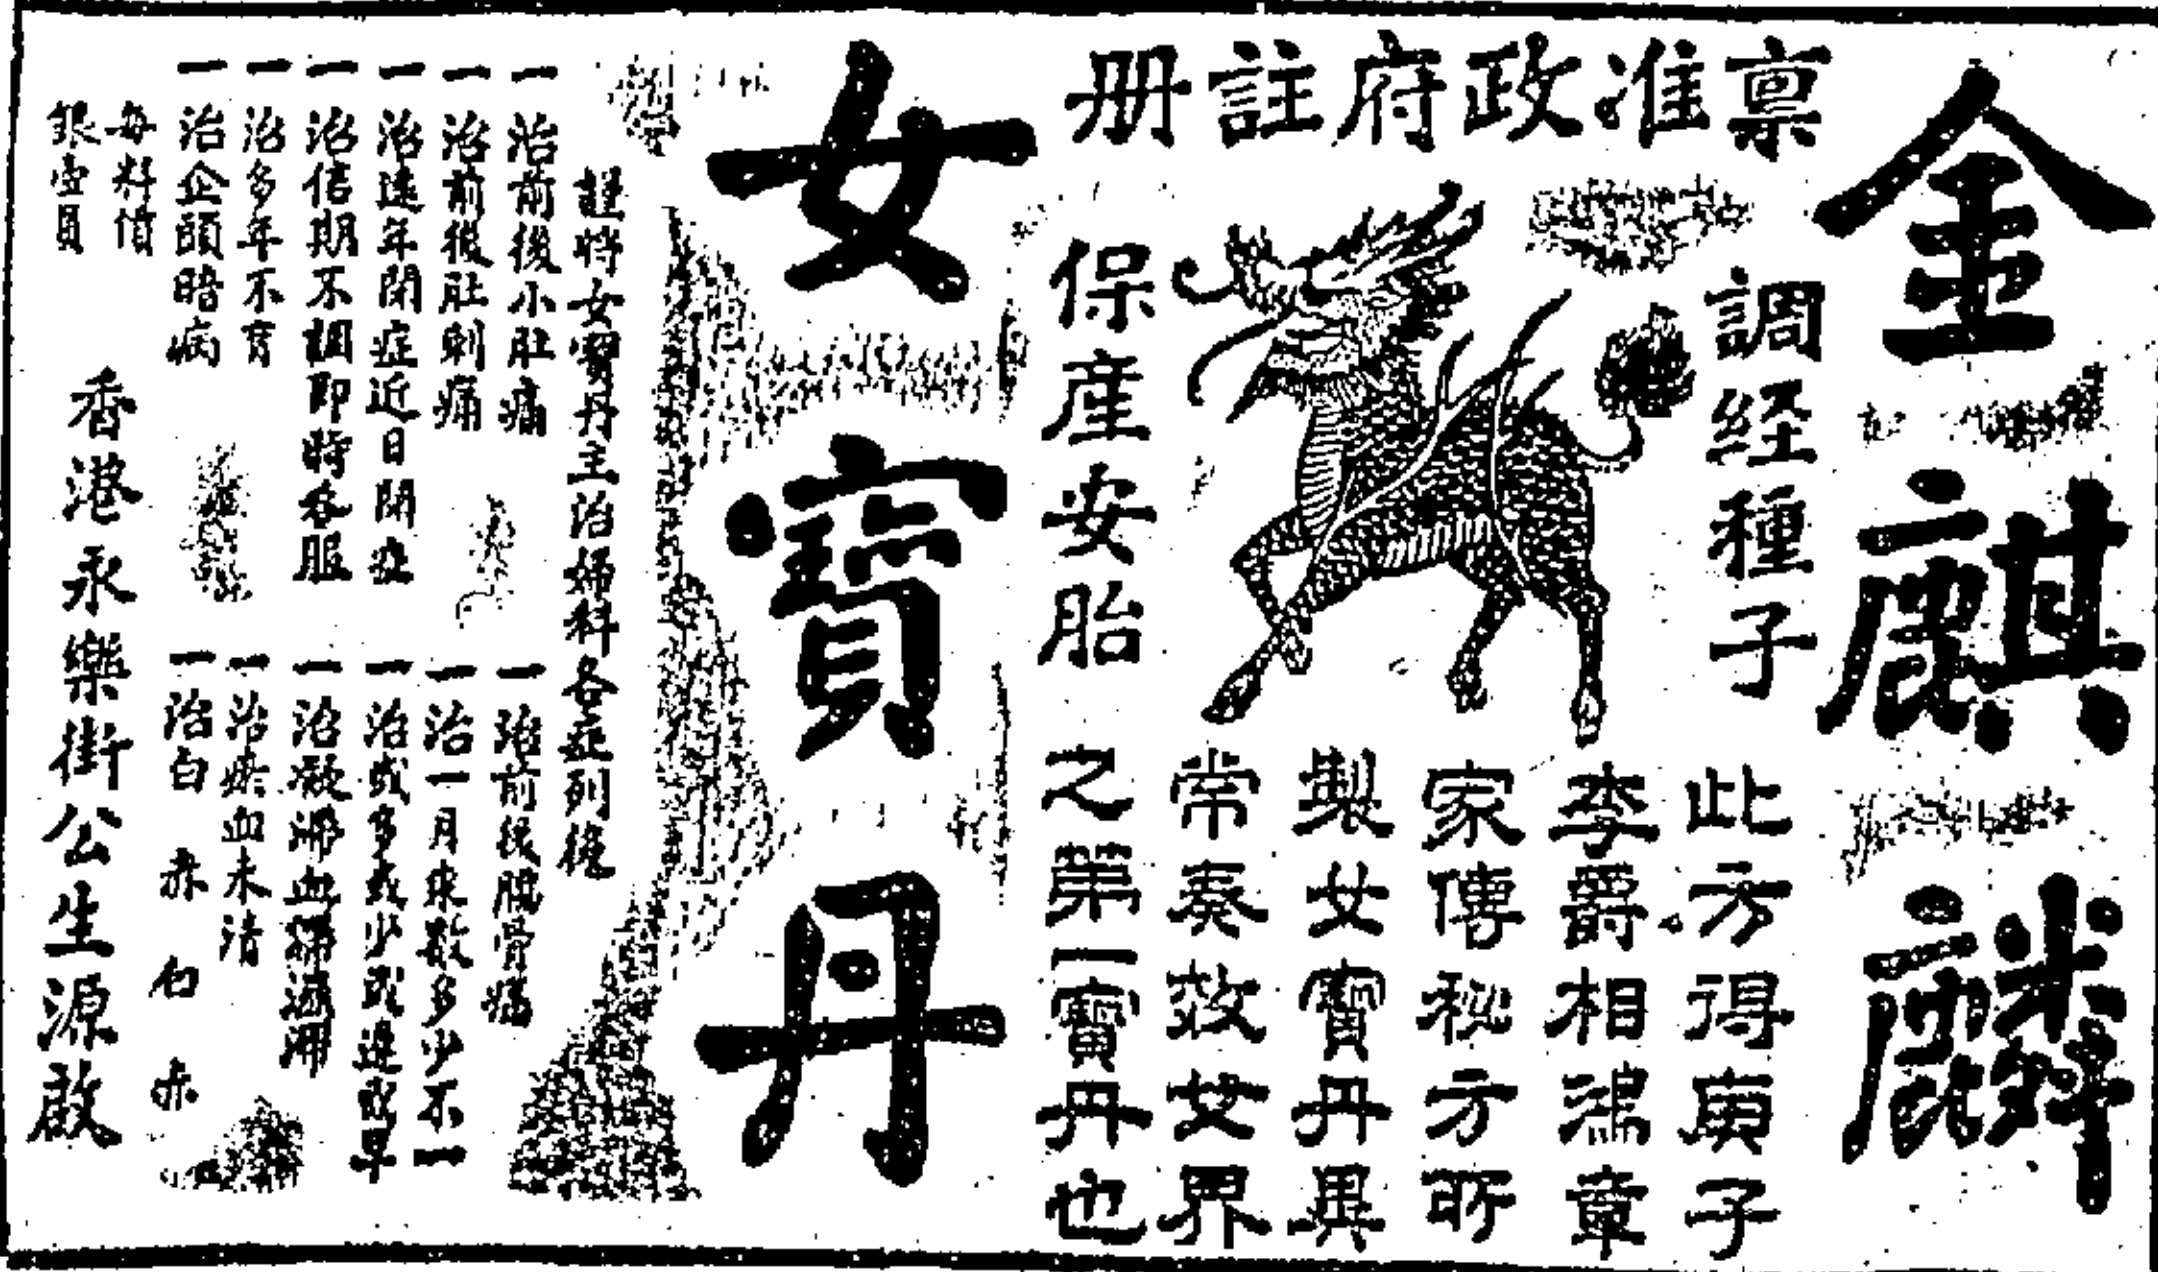 金麒麟
稟准政府註册
調経種子
保產安胎
此方得庚子
李爵相鴻章
家傳秘方所
製女寶丹異
常奏效女界
之第一寶丹也
女寶丹
謹將女寶丹主治婦科各症列後
一治前後小肚痛
一治前後肚刺痛
一治遠年閉症近日閉症
一治信期不調即時吞服
一治多年不育
一治企頭暗病
一治前後腰骨痛
一治一月來數多少不一
一治或多或少或遲或早
一治凝滯血
一治瘀血未清
一治白 赤 白 赤
每料價
銀壹員
香港永樂街公生源啟